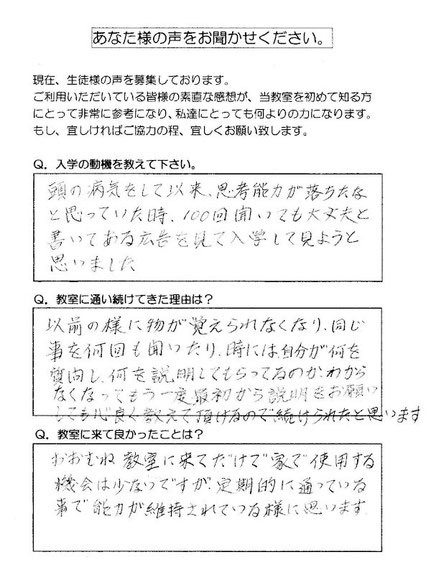 あなた様の声をお聞かせください。
現在、生徒様の声を募集しております。
ご利用いただいている皆様の素直な感想が、当教室を初めて知る方
にとって非常に参考になり、私達にとっても何よりの力になります。
もし、宜しければご協力の程、宜しくお願い致します。
Q. 入学の動機を教えて下さい。
頭の病気をして以来、思考能力が落ちたな
と思っていた時、100回聞いても大丈夫と
書いてある広告を見て入学して見ようと
思いました
Q. 教室に通い続けてきた理由は?
以前の様に物が覚えられなくなり、同じ
事を何回も聞いたり、時には自分が何を
質問し、何を説明してもらってるのかわから
なくなってもう一度最初から説明をお願い
しても心良く教えて頂けるので続けられたと思います
Q. 教室に来て良かったことは?
おおむね教室に来てだけで家で使用する
機会は少ないですが、定期的に通っている
事で能力が維持されている様に思います